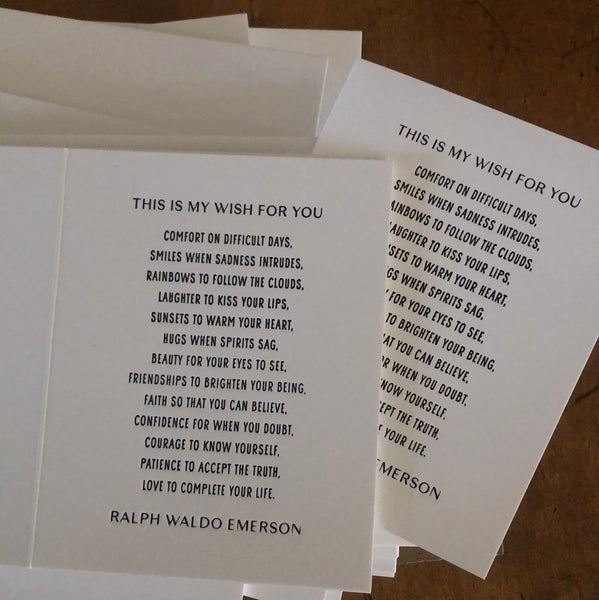 THIS IS MY WISH FOR YOU
COMFORT ON DIFFICULT DAYS,
SMILES WHEN SADNESS INTRUDES,
RAINBOWS TO FOLLOW THE CLOUDS,
LAUGHTER TO KISS YOUR LIPS,
SUNSETS TO WARM YOUR HEART,
HUGS WHEN SPIRITS SAG,
BEAUTY FOR YOUR EYES TO SEE,
FRIENDSHIPS TO BRIGHTEN YOUR BEING,
FAITH SO THAT YOU CAN BELIEVE,
CONFIDENCE FOR WHEN YOU DOUBT,
COURAGE TO KNOW YOURSELF,
PATIENCE TO ACCEPT THE TRUTH,
LOVE TO COMPLETE YOUR LIFE.
RALPH WALDO EMERSON
THIS IS MY WISH FOR YOU
COMFORT ON DIFFICULT DAYS,
SMILES WHEN SADNESS INTRUDES,
AINBOWS TO FOLLOW THE CLOUDS,
AUGHTER TO KISS YOUR LIPS,
SETS TO WARM YOUR HEART,
GS WHEN SPIRITS SAG,
FOR YOUR EYES TO SEE,
TO BRIGHTEN YOUR BEING,
AT YOU CAN BELIEVE,
R WHEN YOU DOUBT,
NOW YOURSELF,
EPT THE TRUTH,
YOUR LIFE.
EMERSON